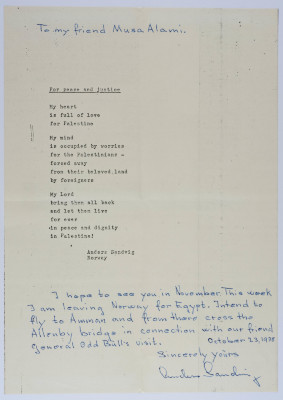 To my friend Musa Alami.
For peace and justice
My heart
is full of love
for Palestine
My mind
is occupied by worries
for the Palestinians -
forced away
from their beloved land
by foreigners
My Lord
bring them all back
and let them live
for ever
in peace and dignity
in Palestine!
Anders Sandvig
Norway
I hope to see you in November. This week
I am leaving Norway for Egypt. Intend to
fly to Amman and from there cross the
Allenby bridge in connection with our friend
general Odd Bull's visit.
October 23, 1978
Sincerely yours
Anders Sandvig